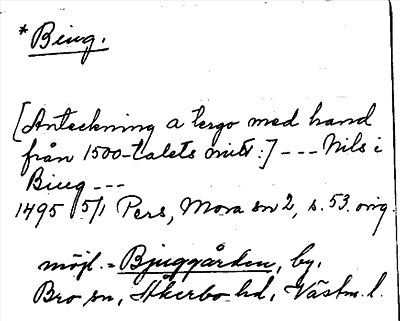 * Biug.
[Anteckning a tergo med hand
från 1500-talets mitt:] --- Nils i
Biug ---
1495 5/1 Pers, Mora sn 2, s. 53. orig.
möjl. = Bjuggården, by,
Bro sn, Åkerbo hd, Västm. l.